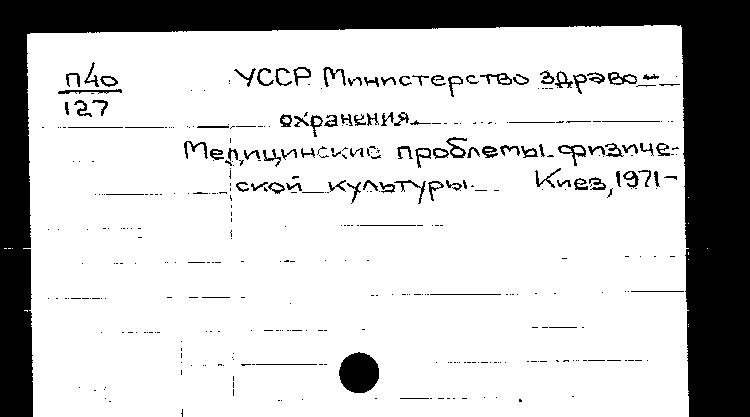 П40
127
УССР. Министерство здраво-
охранения.
Медицинские проблемы физиче-
ской культуры. Киев, 1971-